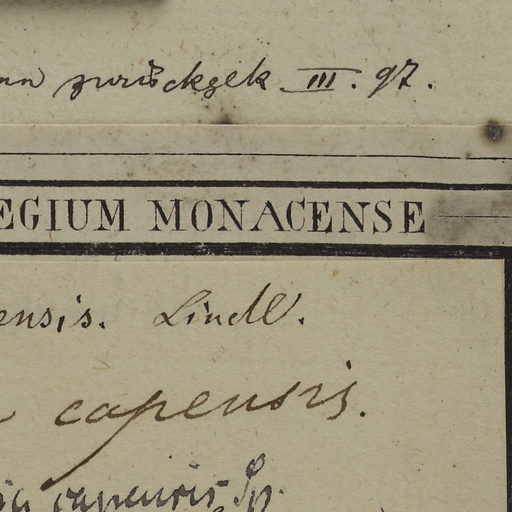 zurückgek III. 97.
EGIUM MONACENSE
ensis. Lindl.
capensis.
capensis Sp.